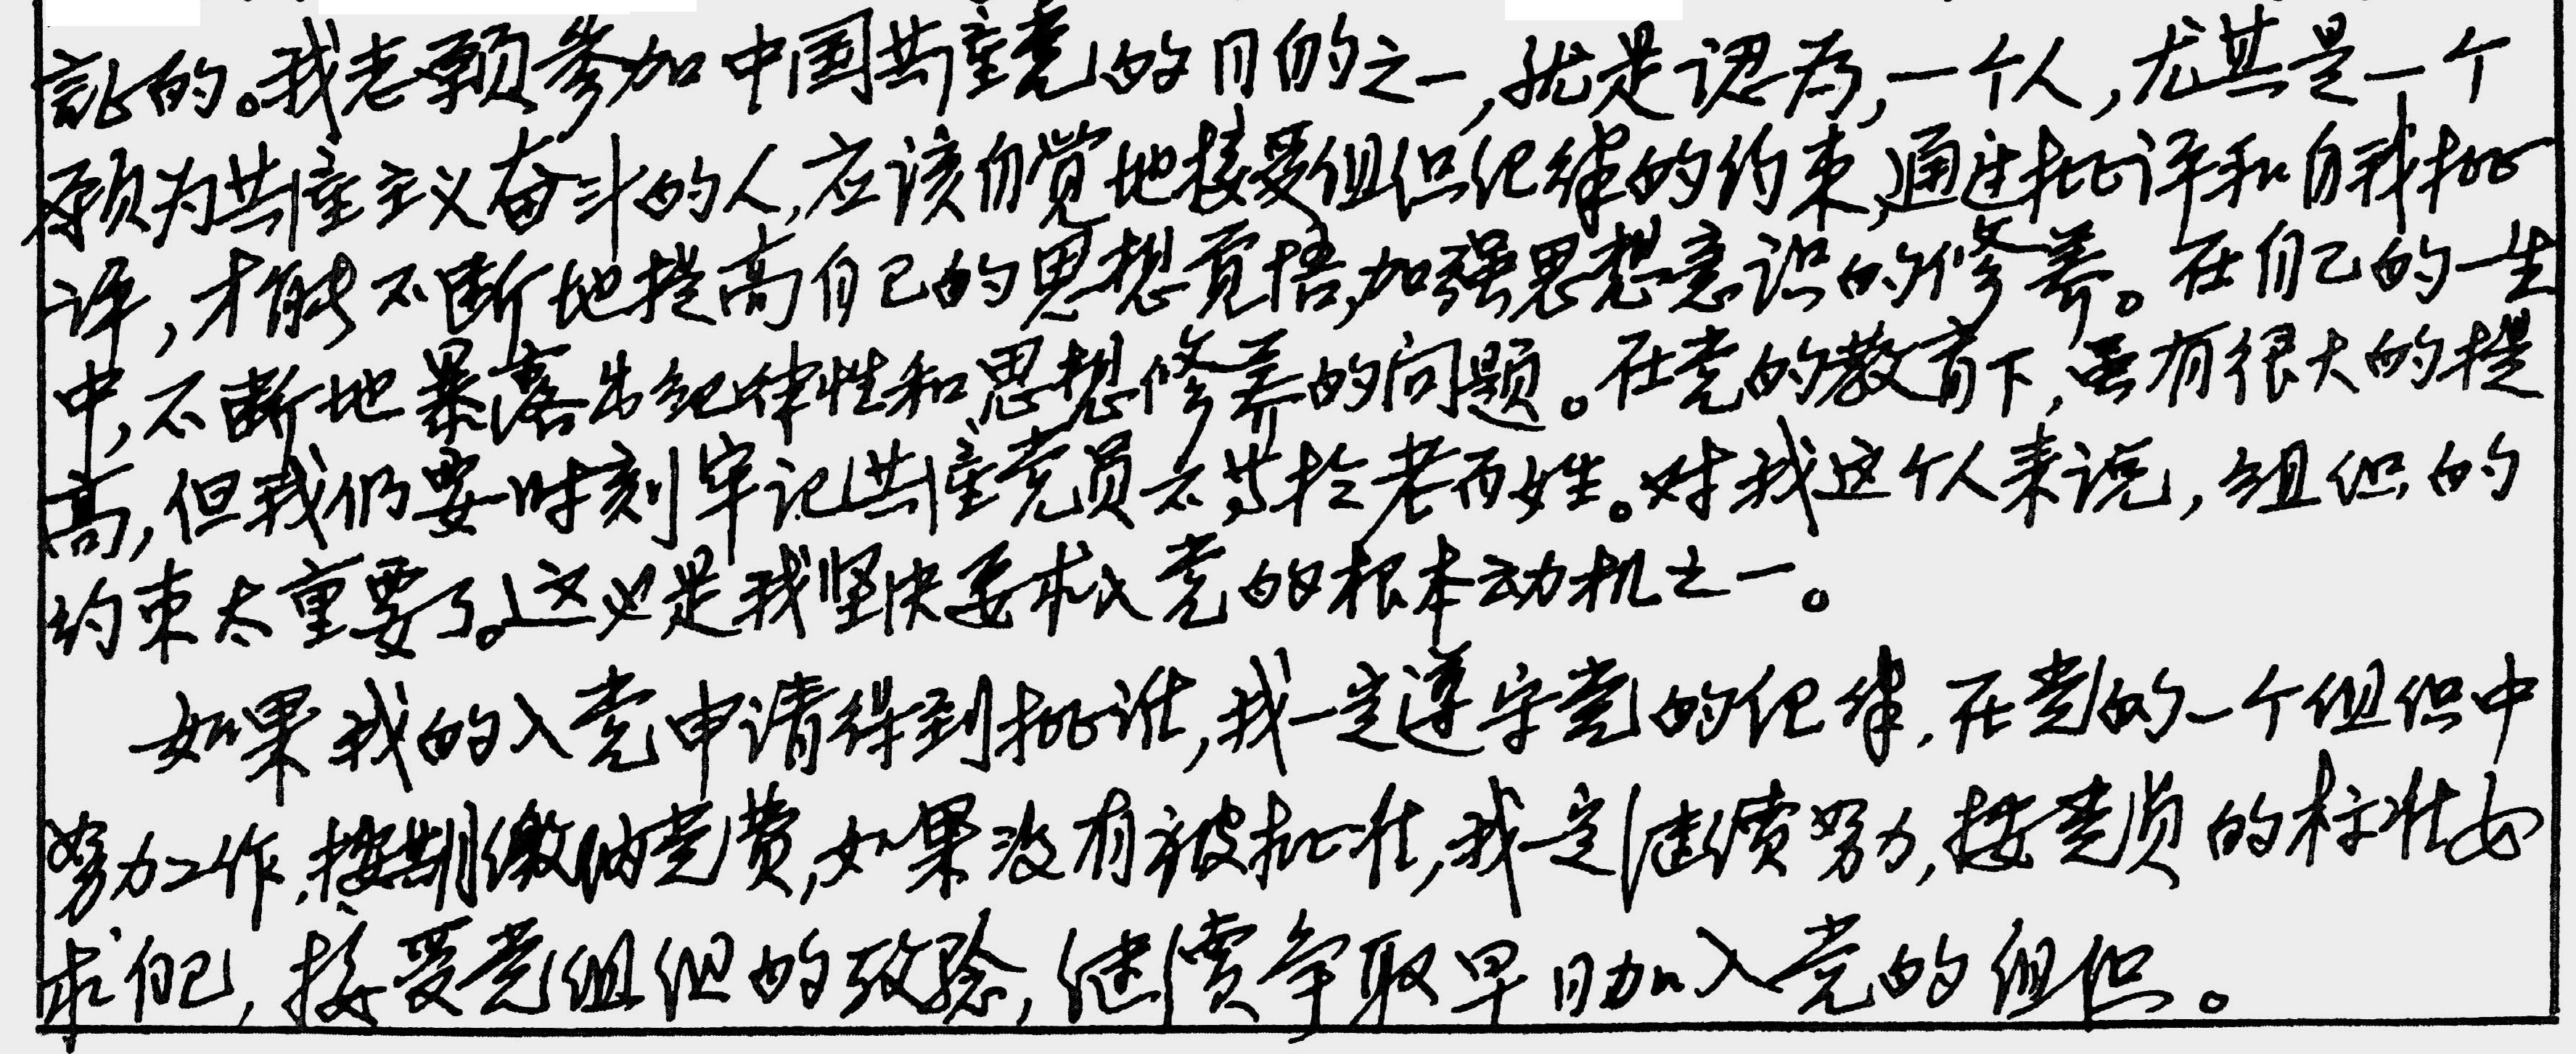 的。我志愿参加中国共产党的目的之一,就是认为,一个人,尤其是一个
愿为共产主义奋斗的人,应该自觉地接受组织纪律的约束,通过批评和自我批
评,才能不断地提高自己的思想觉悟,加强思想意识的修养。在自己的一生
中,不断地暴露出纪律性和思想修养的问题。在党的教育下,虽有很大的提
高,但我仍要时刻牢记共产党员不等于老百姓。对我这个人来说,组织的
约束太重要了。这也是我坚决要求入党的根本动机之一。
如果我的入党申请得到批准,我一定遵守党的纪律,在党的一个组织中
努力工作,按期缴纳党费,如果没有被批准,我一定继续努力,按党员的标准要
求自己,接受党组织的考验,继续争取早日加入党的组织。